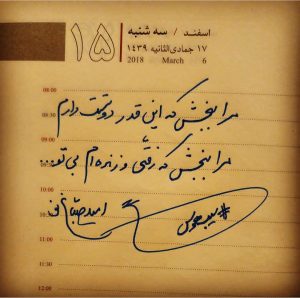 ۱۵
اسفند / سه شنبه
۱۷ جمادی الثانیه ۱۴۳۹
2018 March 6
08:00
08:30
مرا ببخش که این قدر دوستت دارم
09:00
09:30
مرا ببخش که رفتی و زنده ام بی تو...
10:00
10:30
11:00
11:30
12:00